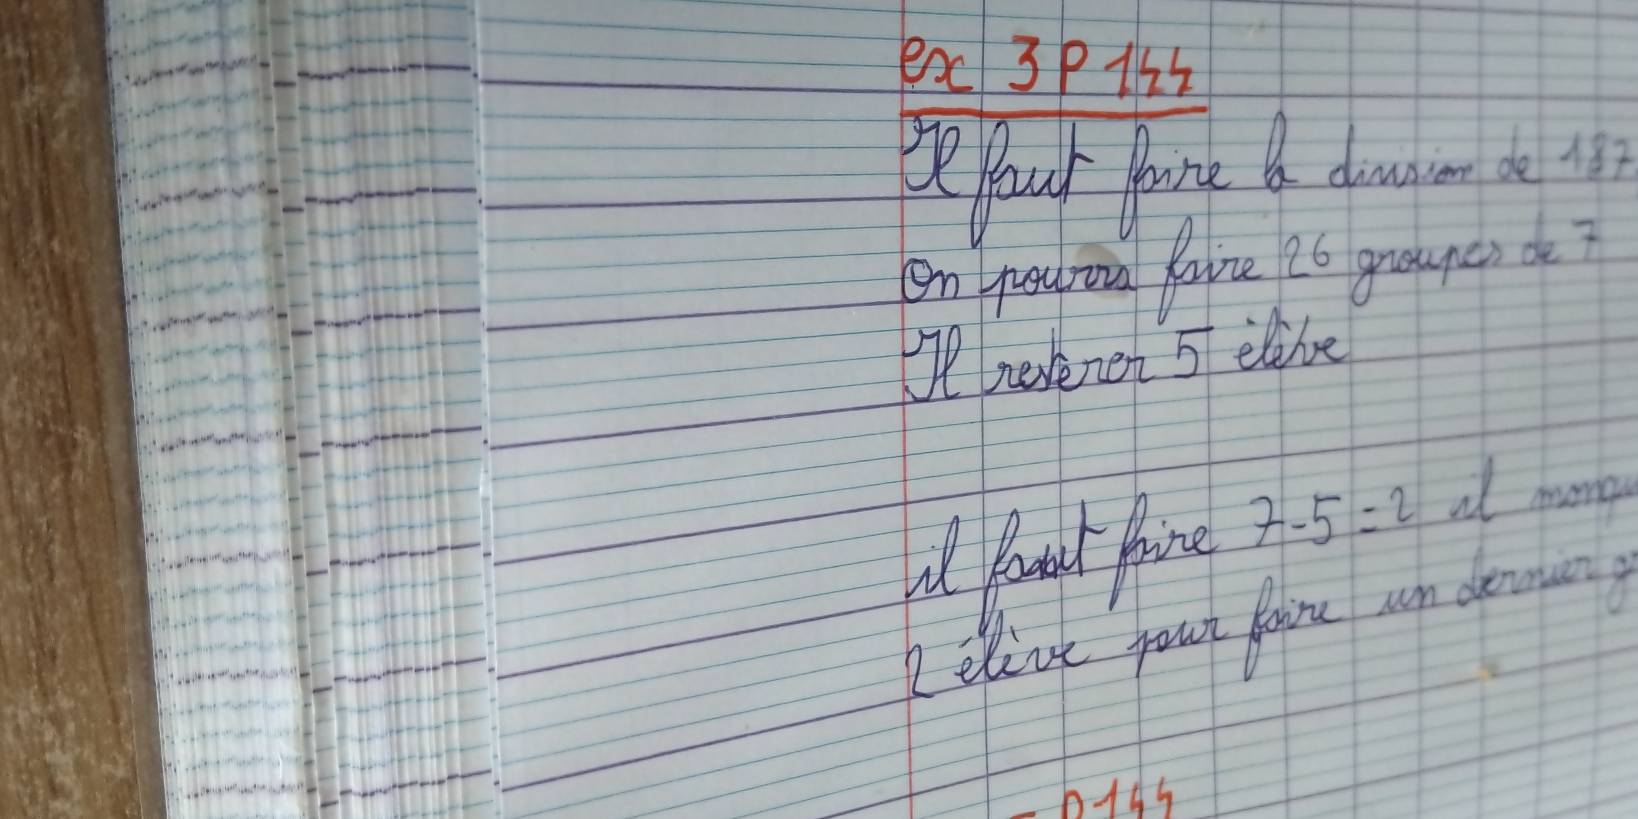 ex 3 P 144
Il faut faire la division de 187
On pourra faire 26 groupes de 7
Il restera 5 élève
il faut faire 7-5=2 il manqu
2 élève pour faire un dernier g
P 144